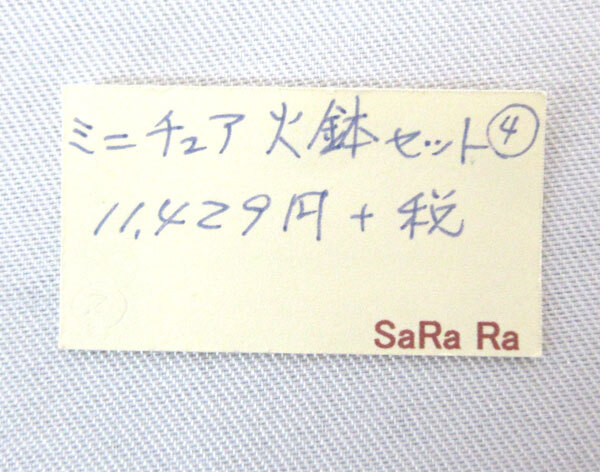 ミニチュア火鉢セット④
11,429円+税
SaRa Ra